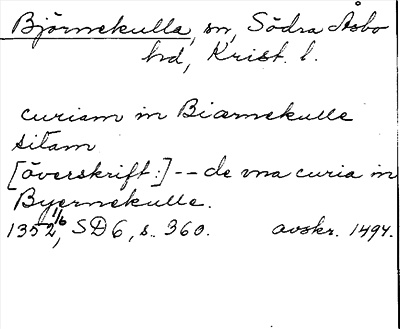 Björnekulla, sn, Södra Åsbo
hd, Krist. l.
curiam in Biærnekulle
sitam
[överskrift:] -- de vna curia in
Byernekulle.
1352 1/6, SD 6, s. 360. avskr. 1494.